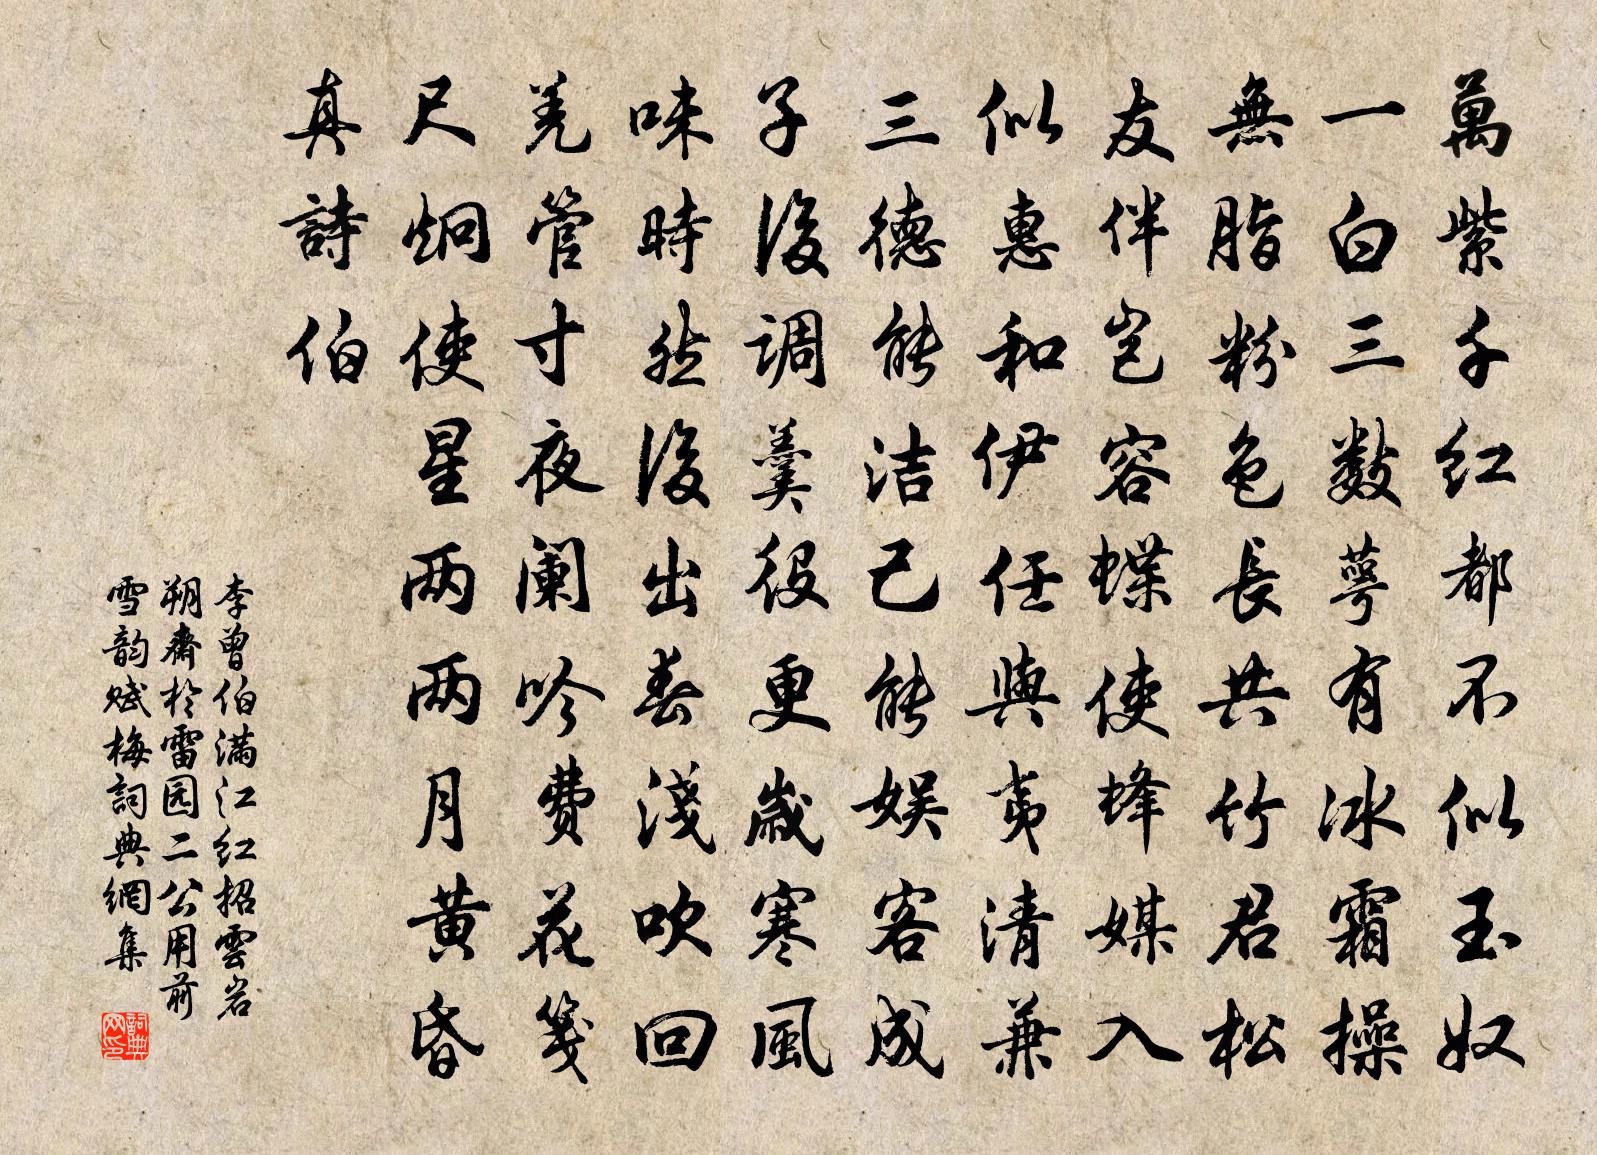 萬紫千红都不似玉奴
一白三數萼有冰霜操
無脂粉色長共竹君松
友伴岂容蝶使蜂媒入
似惠和伊任與夷清兼
三德能洁己能娱客成
子後调羹役更歲寒風
味時然後出春淺吹回
羌管寸夜阑吟费花笺
尺炯使星两两月黄昏
真詩伯
李曾伯满江红招雲岩
朔齋於雷园二公用前
雪韵赋梅詞典網集
詞典网印